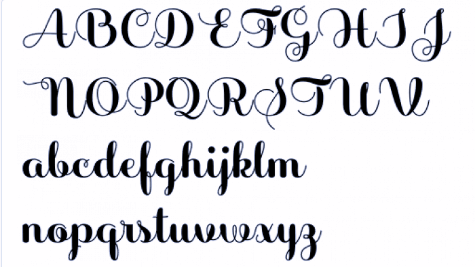 ABCDEFGHIJ
NOPQRSTUV
abcdefghijklm
nopqrstuvwxyz